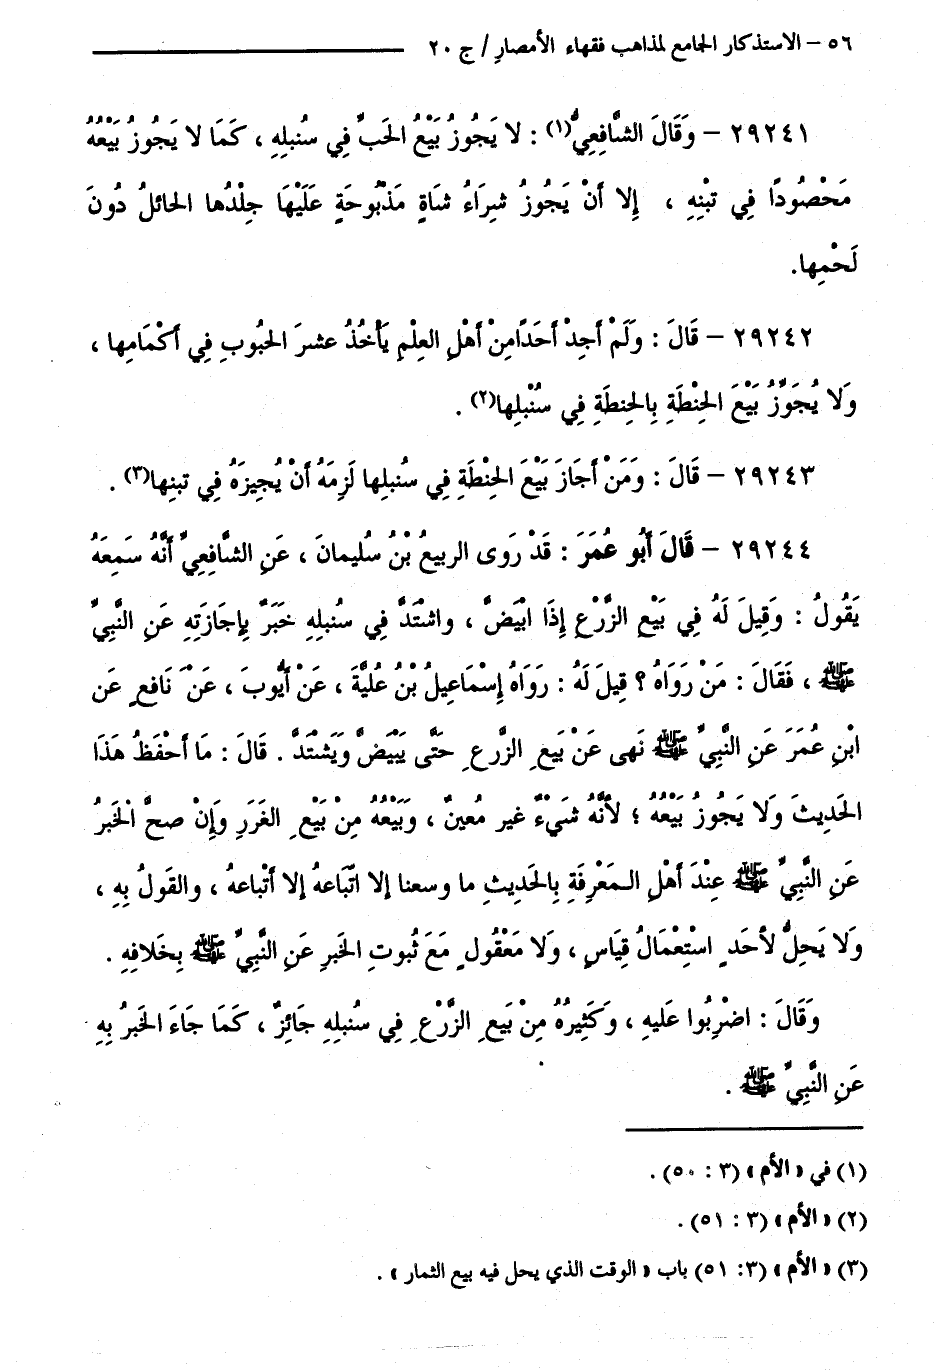 ٥٦ – الاستذكار الجامع لمذاهب فقهاء الأمصار / ج ٢٠
٢٩٢٤١ – وَقَالَ الشَّافِعِيُّ(١) : لا يَجُوزُ بَيْعُ الحَبِّ فِي سُنبلِهِ ، كَمَا لا يَجوزُ بَيْعُهُ
مَحْصُودًا فِي تبْنِهِ ، إِلا أَنْ يَجُوزُ شِرَاءُ شَاةٍ مَذْبُوحَةٍ عَلَيْهَا جِلْدُها الحائلُ دُونَ
لَحْمِها.
٢٩٢٤٢ – قَالَ : وَلَمْ أجِدْ أحَدًا مِنْ أهْلِ العِلْمِ يَأْخُذُ عشرَ الحُبُوبِ فِي أكْمَامِها ،
وَلا يُجَوِّزُ بَيْعَ الحِنْطَةِ بِالحِنطَةِ فِي سُنْبلِها(٢) .
٢٩٢٤٣ – قَالَ : وَمَنْ أجَازَ بَيْعَ الحِنْطَةِ فِي سُنبلِها لَزِمَهُ أَنْ يُجِيزَهُ فِي تبنِها(٣) .
٢٩٢٤٤ – قَالَ أَبُو عُمَرَ : قَدْ رَوَى الربيعُ بْنُ سُليمانَ ، عَنِ الشَّافِعِيِّ أَنَّهُ سَمِعَهُ
يَقُولُ : وَقِيلَ لَهُ فِي بَيْعِ الزَّرْعِ إِذَا ابْيَضَّ ، واشْتَدَّ فِي سُنبلِهِ خَبَرٌ بِإِجازَتِهِ عَنِ النَّبِيِّ
ﷺ ، فَقَالَ : مَنْ رَوَاهُ ؟ قِيلَ لَهُ : رَوَاهُ إِسْمَاعِيلُ بْنُ عُليَّةَ ، عَنْ أَيُّوبَ ، عَنْ نَافعٍ عَن
ابْنِ عُمَرَ عَنِ النَّبِيِّ ﷺ نَهى عَنْ بَيعِ الزَّرعِ حَتَّى يَبْيَضَّ وَيَشتَدَّ . قَالَ : مَا أَحْفَظُ هَذَا
الحَدِيثَ وَلا يَجُوزُ بَيْعُهُ ؛ لأَنَّهُ شَيْءٌ غير مُعينٌ ، وَبَيْعُهُ مِنْ بَيْعِ الغَرَرِ وَإِنْ صحَّ الْخَبرُ
عَنِ النَّبِيِّ ﷺ عِنْدَ أهْلِ الـمَعْرِفَةِ بِالحَدِيثِ ما وسعنا إلا اتّبَاعهُ إلا أتْباعهُ ، والقَولُ بِهِ ،
وَلا يَحِلُّ لأحَدٍ اسْتِعْمَالُ قِيَاسٍ ، وَلا مَعْقُولٍ مَعَ ثُبوتِ الخَبرِ عَنِ النَّبِيِّ ﷺ بِخَلافِهِ .
وَقَالَ : اضْرِبُوا عَليهِ ، وَكَثِيرُهُ مِنْ بَيعِ الزَّرْعِ فِي سُنبلِهِ جَائِزٌ ، كَمَا جَاءَ الخَبرُ بِهِ
عَنِ النَّبِيِّ ﷺ .
(١) في « الأم » (٣ : ٥٠) .
(٢) « الأم » (٣ : ٥١) .
(٣) « الأم » (٣: ٥١) باب « الوقت الذي يحل فيه بيع الثمار » .